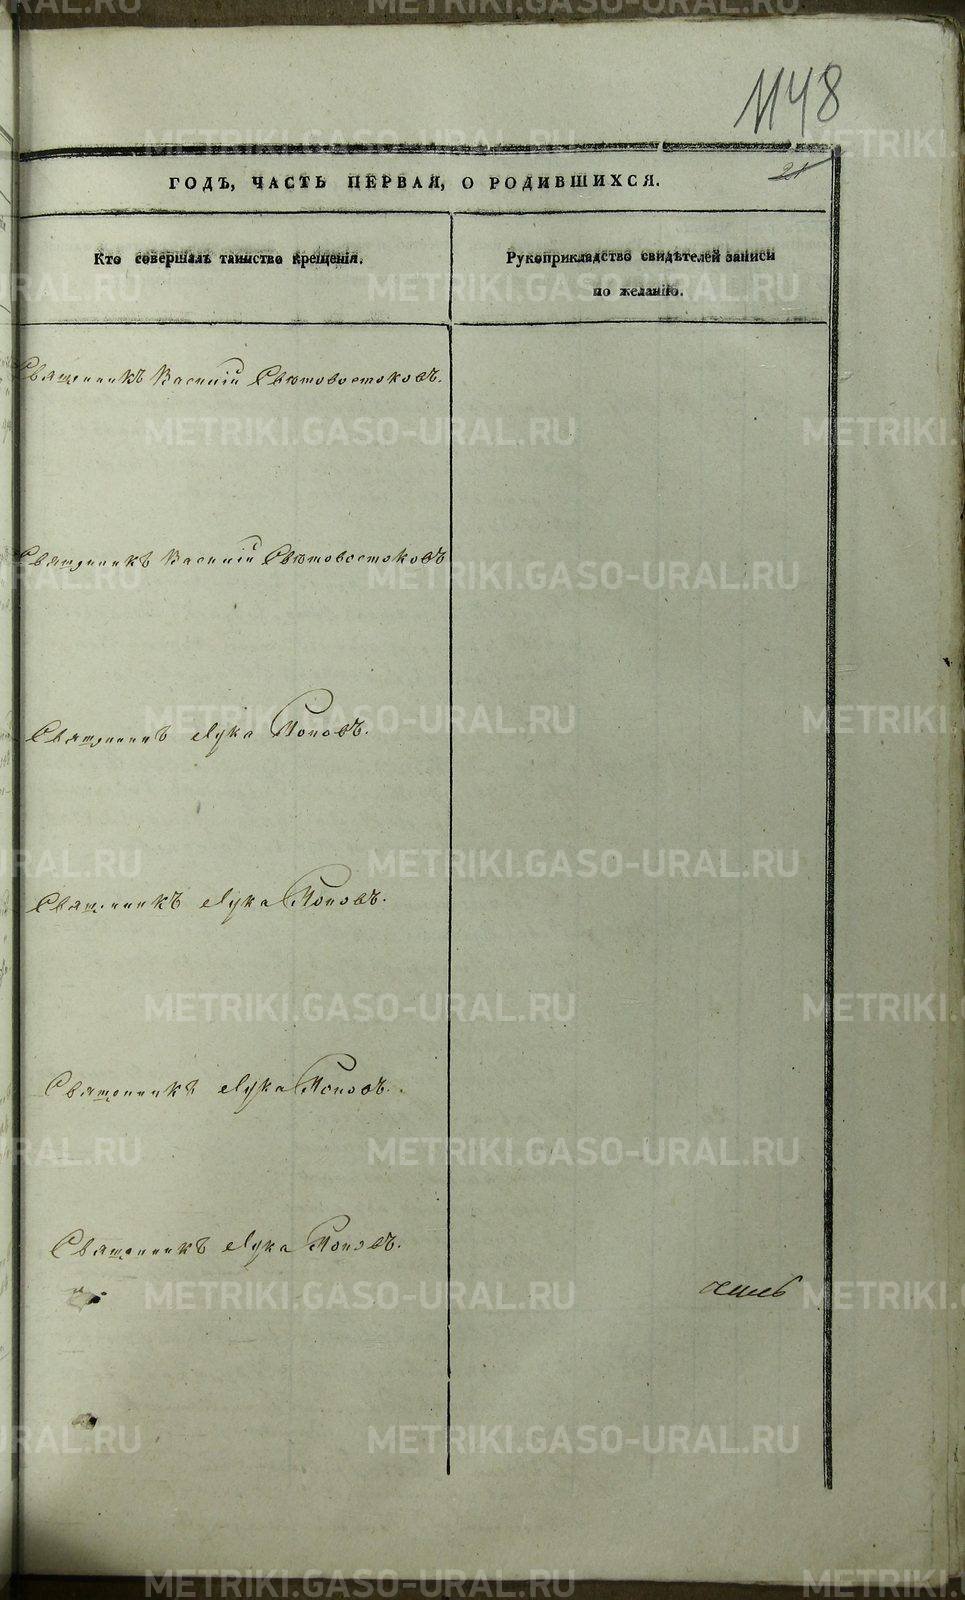 1148
21
ГОДЪ, ЧАСТЬ ПЕРВАЯ, О РОДИВШИХСЯ.
Кто совершалъ таинство крещенія.
Рукоприкладство свидѣтелей записи
по желанію.
Священникъ Василій Свѣтовостоковъ.
Священникъ Василій Свѣтовостоковъ
Священникъ Лука Поповъ.
Священникъ Лука Поповъ.
Священникъ Лука Поповъ.
Священникъ Лука Поповъ.
METRIKI.GASO-URAL.RU